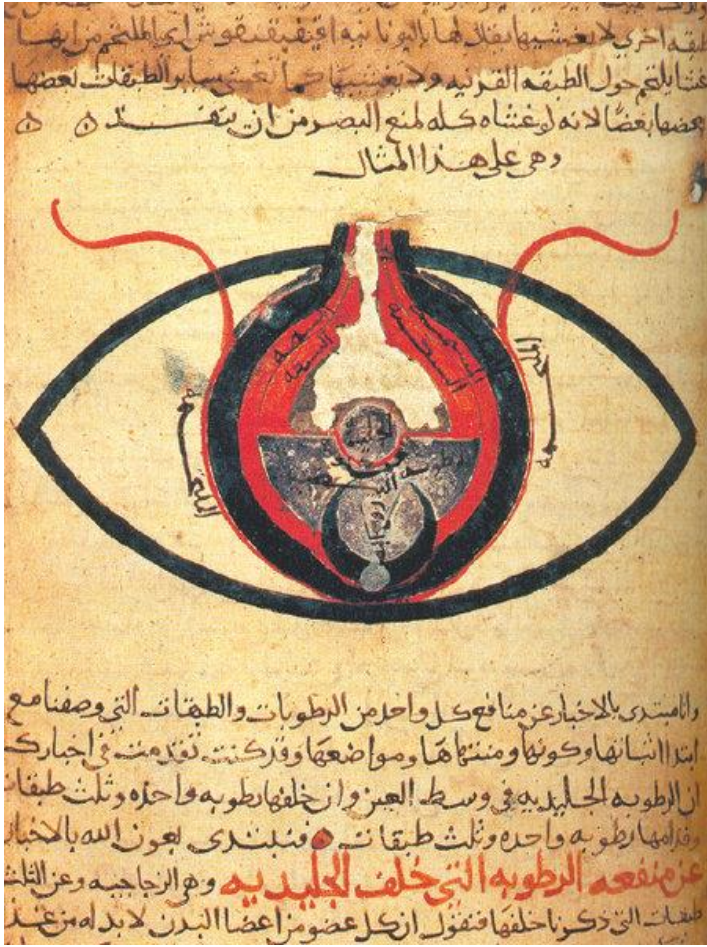 طبقه اخرى لا يغشيها يقال لها باليونانيه اي الملتحم من انها
غشا يلتحم حول الطبقه القرنيه ولا يغشيها كما تغشى ساير الطبقات بعضها
بعضها بعضًا لانه لو غشاه كله لمنع البصر من ان ينفذ
وهى على هذا المثال
الجليديه
وانا مبتدى بالاخبار عن منافع كل واحد من الرطوبات والطبقات التي وصفنا مع
ابتدا اثباتها وكونها ومنتهاها ومواضعها وقد كنت تقدمت في اخبارك
ان الرطوبه الجليديه في وسط العين وان خلفها رطوبه واحده وثلث طبقات
وقدامها رطوبه واحده وثلث طبقات فنبتدى بعون الله بالاخبار
عن منفعه الرطوبه التي خلف الجليديه وهو الزجاجيه وعن الثلث
طبقات التي ذكرنا خلفها فنقول ان كل عضو من اعضا البدن لا بد له من